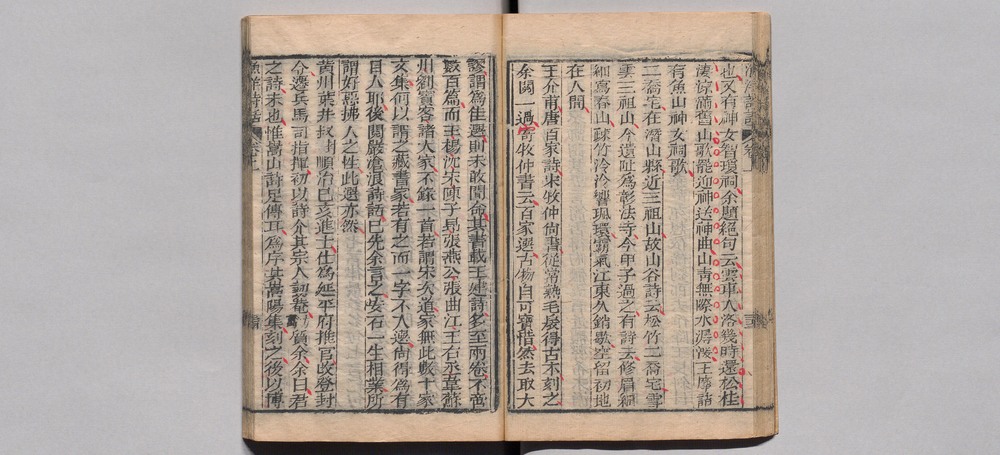 漁洋詩話 卷上
也又有神女智瓊祠余題絕句云雲車入洛幾時還松桂
淒涼滿舊山歌罷迎神送神曲山青無際水潺湲王摩詰
有魚山神女祠歌
二喬宅在潛山縣近三祖山故山谷詩云松竹二喬宅雪
雲三祖山今遺址為彰法寺今甲子過之有詩云修眉細
細寫春山疎竹泠泠響珮環霸氣江東久銷歇空留初地
在人間
王介甫唐百家詩宋牧仲尚書從常熟毛扆得古本刻之
余閱一過寄牧仲書云百家選古物自可寶惜然去取大
謬謂為佳選則未敢聞命其書載王建詩多至兩卷不啻
數百篇而王楊沈宋陳子昂張燕公張曲江王右丞韋蘇
州劉賓客諸大家不錄一首若謂宋次道家無此數十家
文集何以謂之藏書家若有之而一字不入選尚得為有
目人耶後閱嚴滄浪詩話已先余言之安石一生相業所
謂好惡拂人之性此選亦然
黃州葉井叔封順治己亥進士仕為延平府推官改登封
令遷兵馬司指揮初以詩介其宗人訒菴質余余曰君
之詩未也惟嵩山詩足傳耳為序其嵩陽集刻之後以博
漁洋詩話 卷上